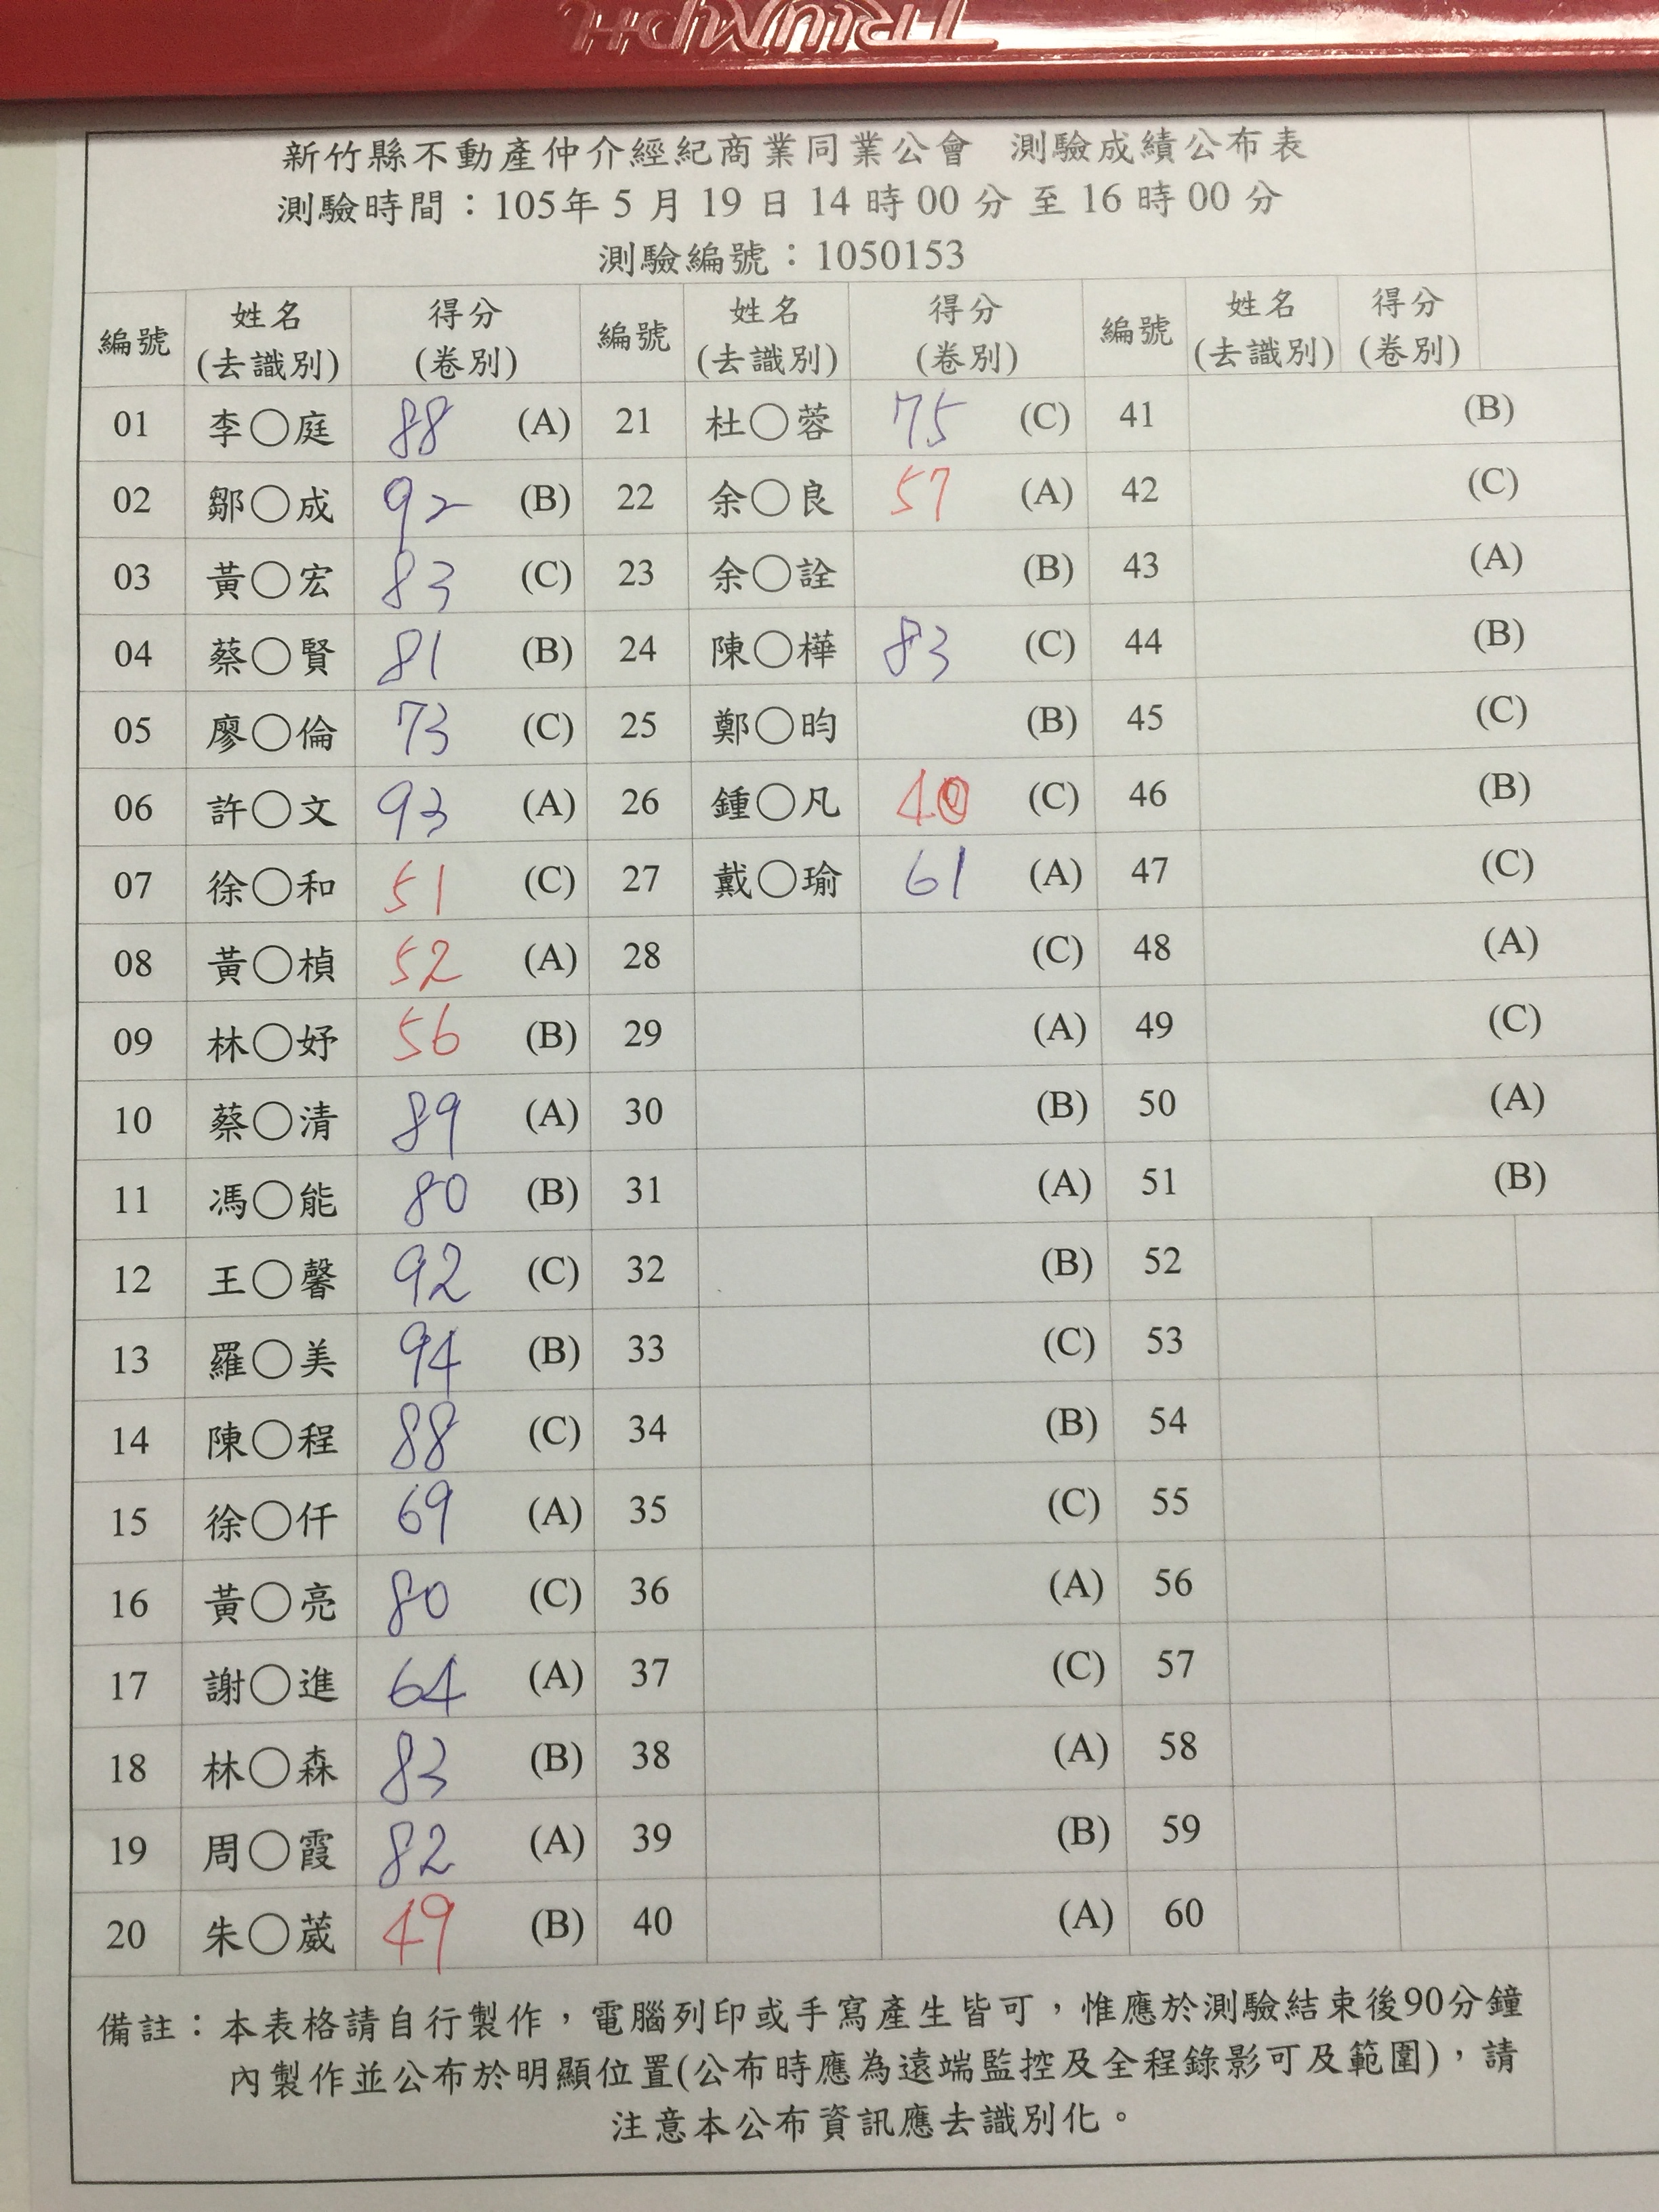 TRIUMPH
新竹縣不動產仲介經紀商業同業公會 測驗成績公布表
測驗時間：105年 5 月 19 日 14 時 00 分 至 16 時 00 分
測驗編號：1050153
編號 姓名 (去識別) 得分 (卷別) 編號 姓名 (去識別) 得分 (卷別) 編號 姓名 (去識別) 得分 (卷別)
01 李○庭 88 (A) 21 杜○蓉 75 (C) 41 (B)
02 鄒○成 92 (B) 22 余○良 57 (A) 42 (C)
03 黃○宏 83 (C) 23 余○詮 (B) 43 (A)
04 蔡○賢 81 (B) 24 陳○樺 83 (C) 44 (B)
05 廖○倫 73 (C) 25 鄭○昀 (B) 45 (C)
06 許○文 93 (A) 26 鍾○凡 40 (C) 46 (B)
07 徐○和 51 (C) 27 戴○瑜 61 (A) 47 (C)
08 黃○楨 52 (A) 28 (C) 48 (A)
09 林○妤 56 (B) 29 (A) 49 (C)
10 蔡○清 89 (A) 30 (B) 50 (A)
11 馮○能 80 (B) 31 (A) 51 (B)
12 王○馨 92 (C) 32 (B) 52
13 羅○美 94 (B) 33 (C) 53
14 陳○程 88 (C) 34 (B) 54
15 徐○仟 69 (A) 35 (C) 55
16 黃○亮 80 (C) 36 (A) 56
17 謝○進 64 (A) 37 (C) 57
18 林○森 83 (B) 38 (A) 58
19 周○霞 82 (A) 39 (B) 59
20 朱○葳 49 (B) 40 (A) 60
備註：本表格請自行製作，電腦列印或手寫產生皆可，惟應於測驗結束後90分鐘
內製作並公布於明顯位置(公布時應為遠端監控及全程錄影可及範圍)，請
注意本公布資訊應去識別化。